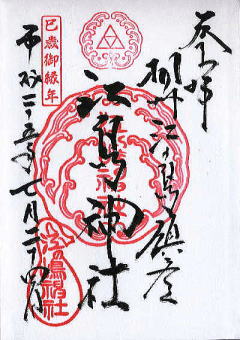 奉拝
相州江島鎮座
江島神社
巳歳御縁年
平成二十五年七月二十四日
江島神社